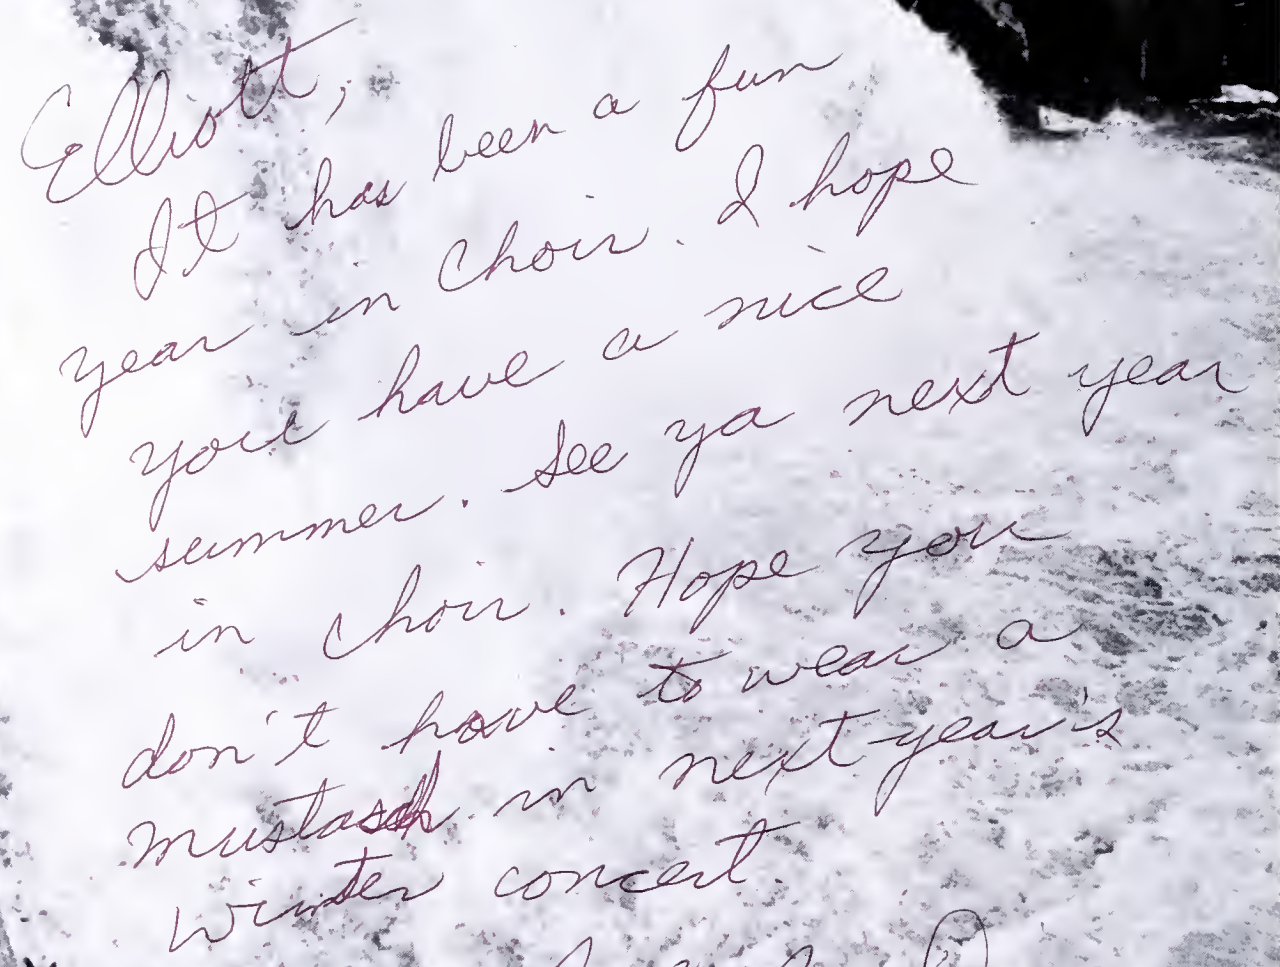 Elliott,
It has been a fun
year in choir. I hope
you have a nice
summer. See ya next year
in choir. Hope you
don't have to wear a
mustach in next year's
winter concert.